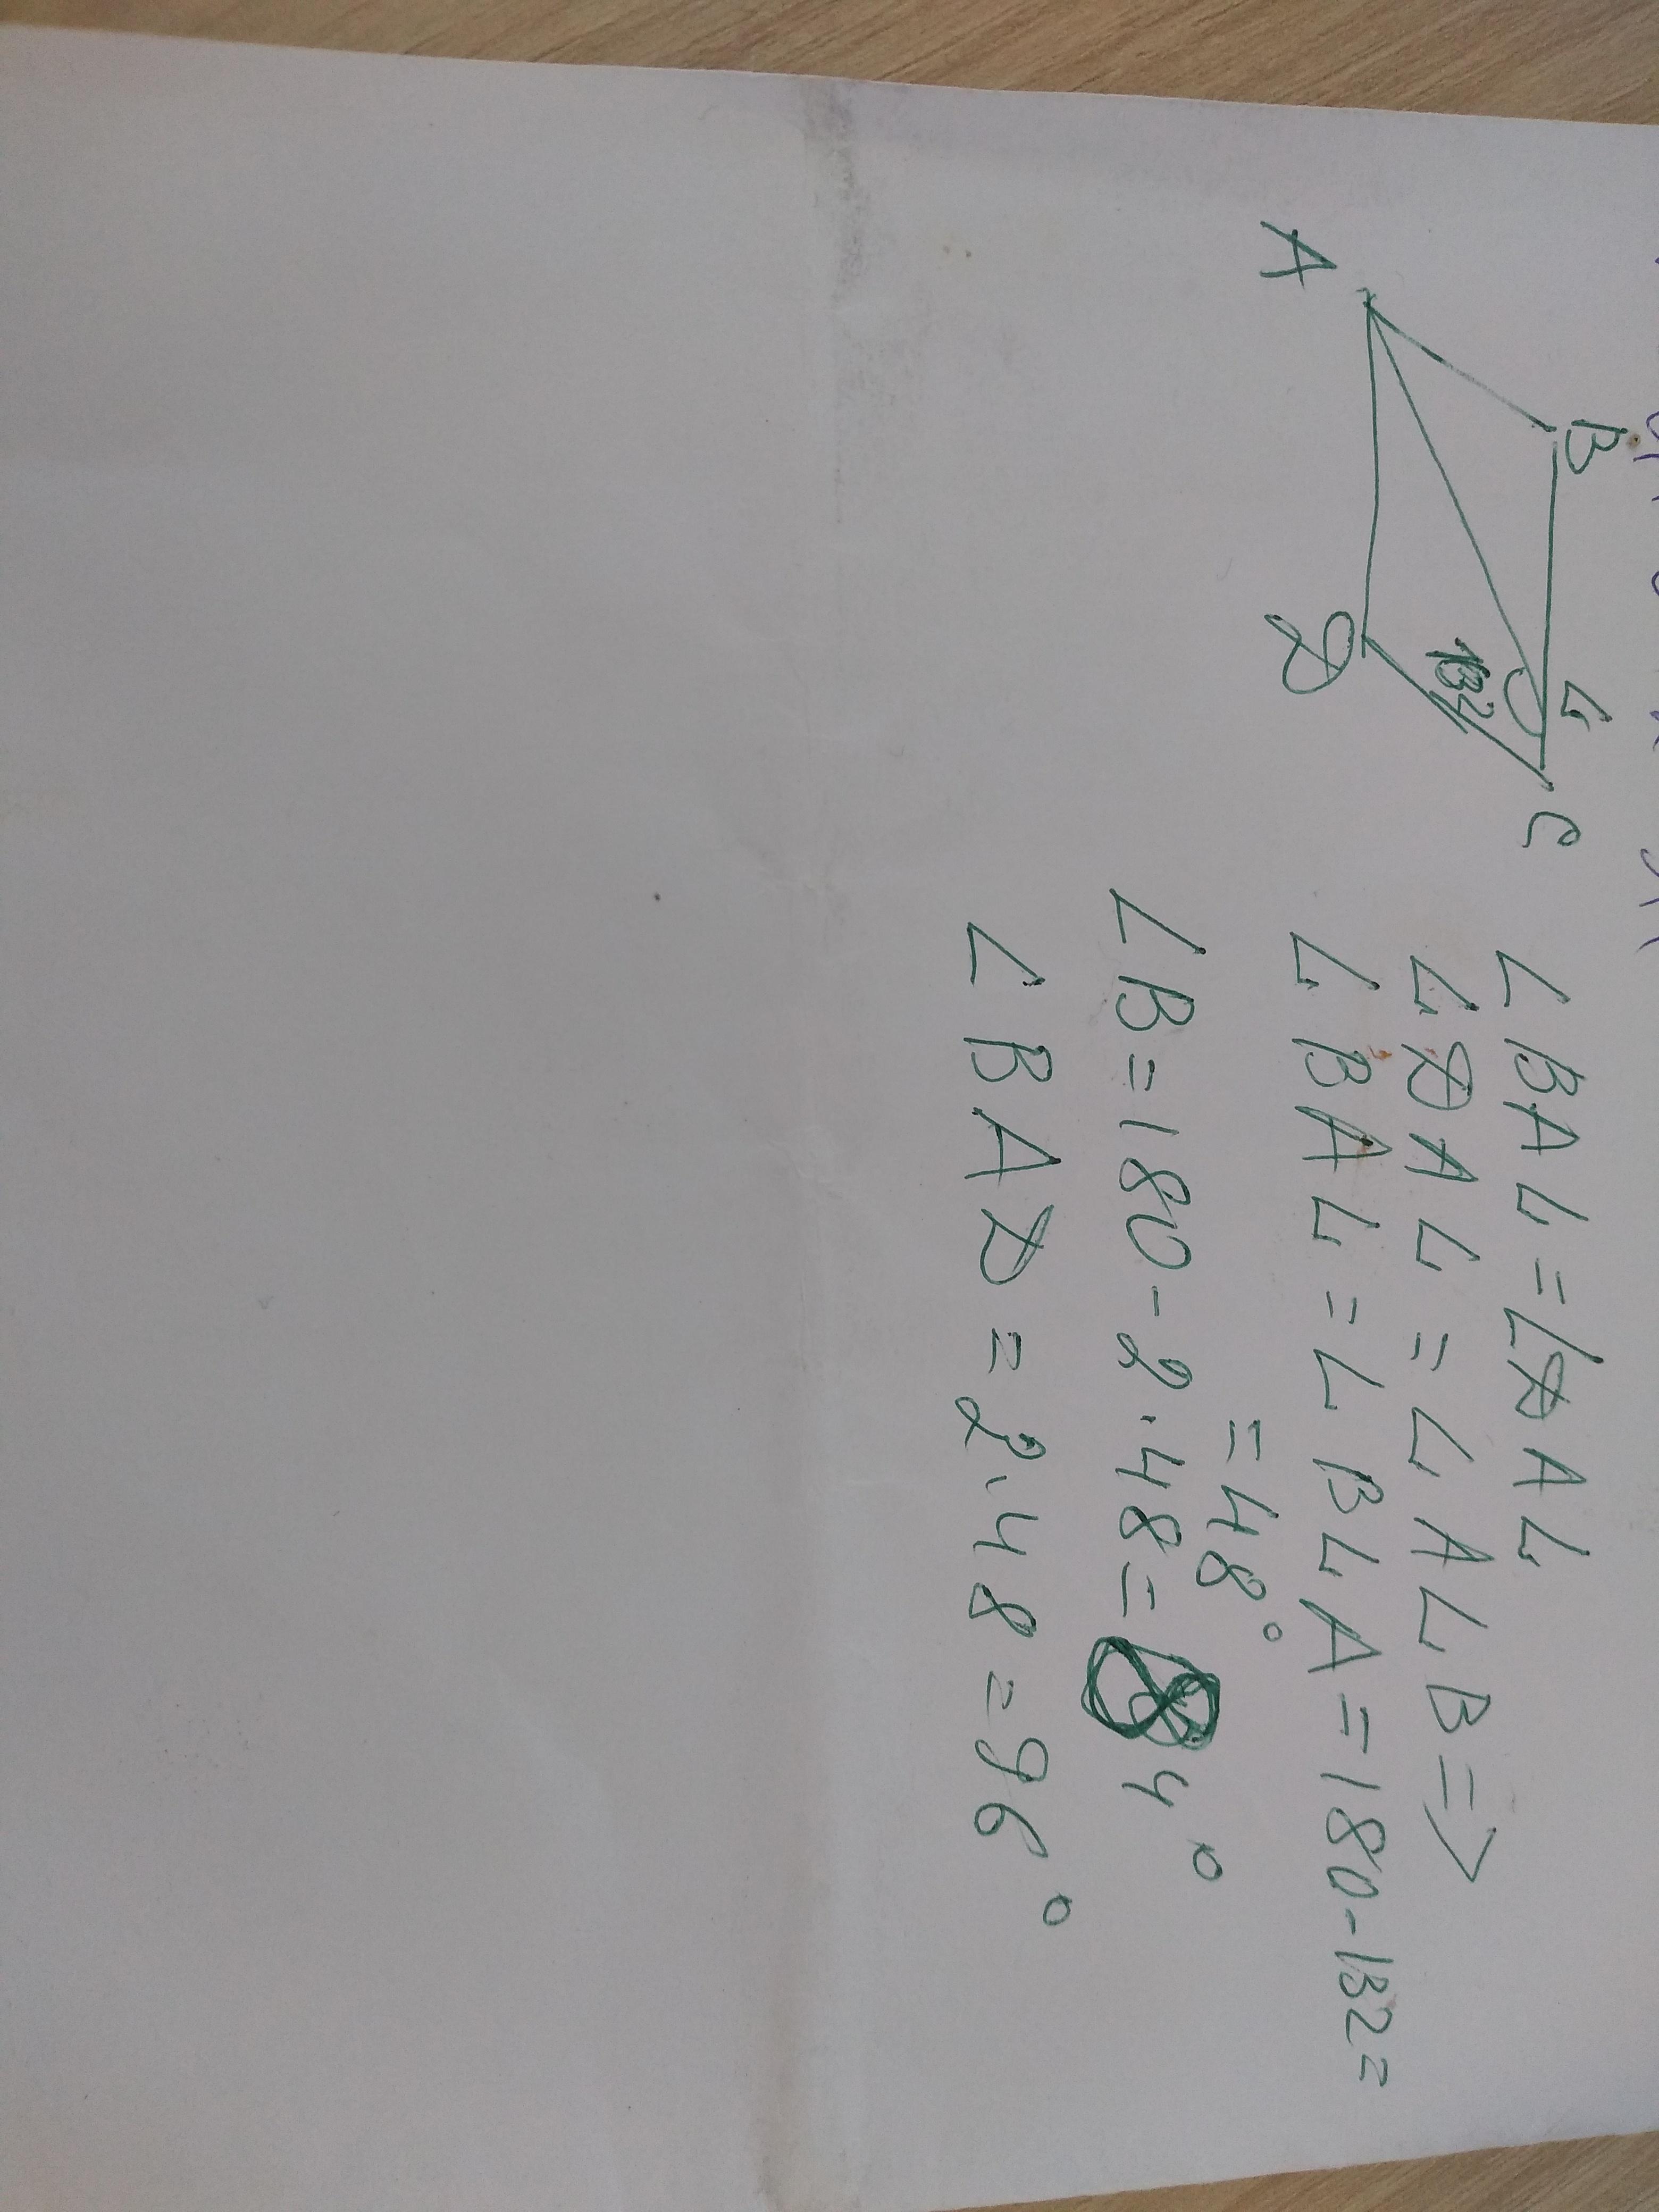 A
B
L
C
132
D
∠BAL = ∠DAL
∠DAL = ∠ALB =>
∠BAL = ∠BLA = 180-132=
= 48°
∠B = 180 - 2·48 = 84°
∠BAD = 2·48 = 96°